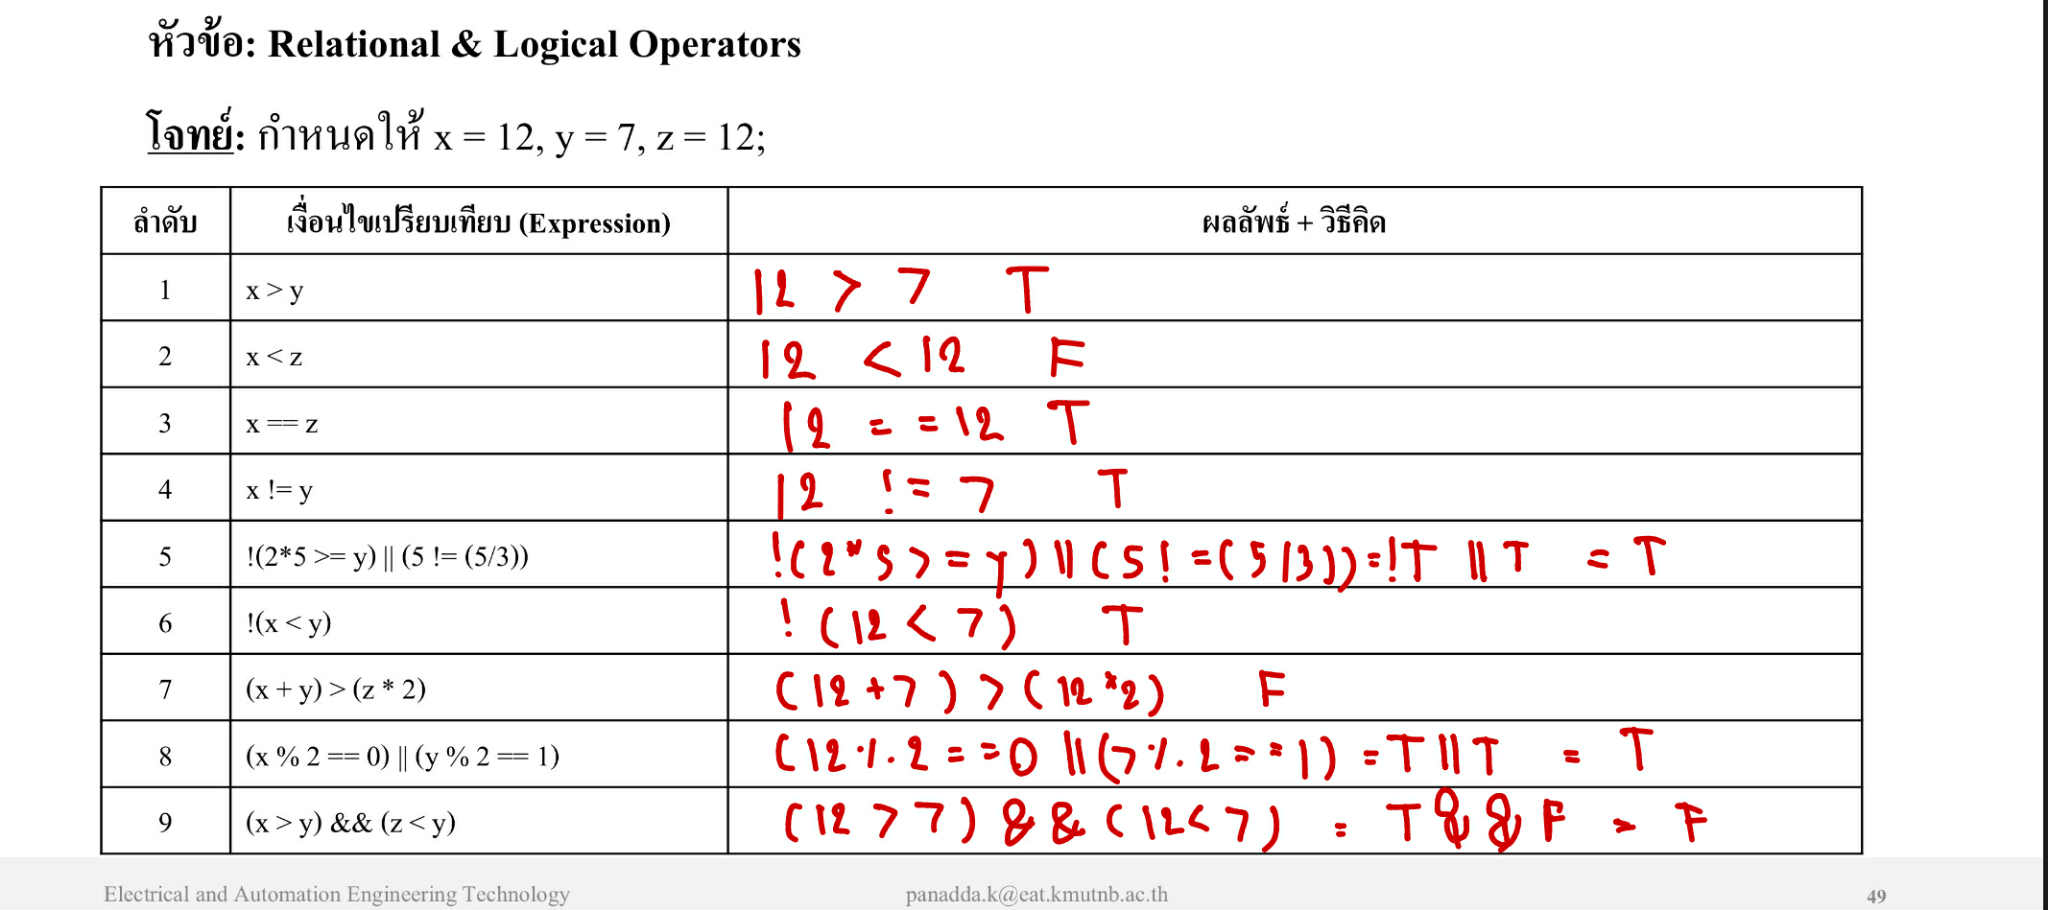 หัวข้อ: Relational & Logical Operators
โจทย์: กำหนดให้ x = 12, y = 7, z = 12;
ลำดับ เงื่อนไขเปรียบเทียบ (Expression) ผลลัพธ์ + วิธีคิด
1 x > y 12 > 7 T
2 x < z 12 < 12 F
3 x == z 12 = = 12 T
4 x != y 12 != 7 T
5 !(2*5 >= y) || (5 != (5/3)) !(2*5 >= y) || (5 != (5/3)) = !T || T = T
6 !(x < y) !(12 < 7) T
7 (x + y) > (z * 2) (12 + 7) > (12*2) F
8 (x % 2 == 0) || (y % 2 == 1) (12 % 2 = = 0 || (7 % 2 = = 1) = T || T = T
9 (x > y) && (z < y) (12 > 7) && (12 < 7) = T && F = F
Electrical and Automation Engineering Technology panadda.k@eat.kmutnb.ac.th 49